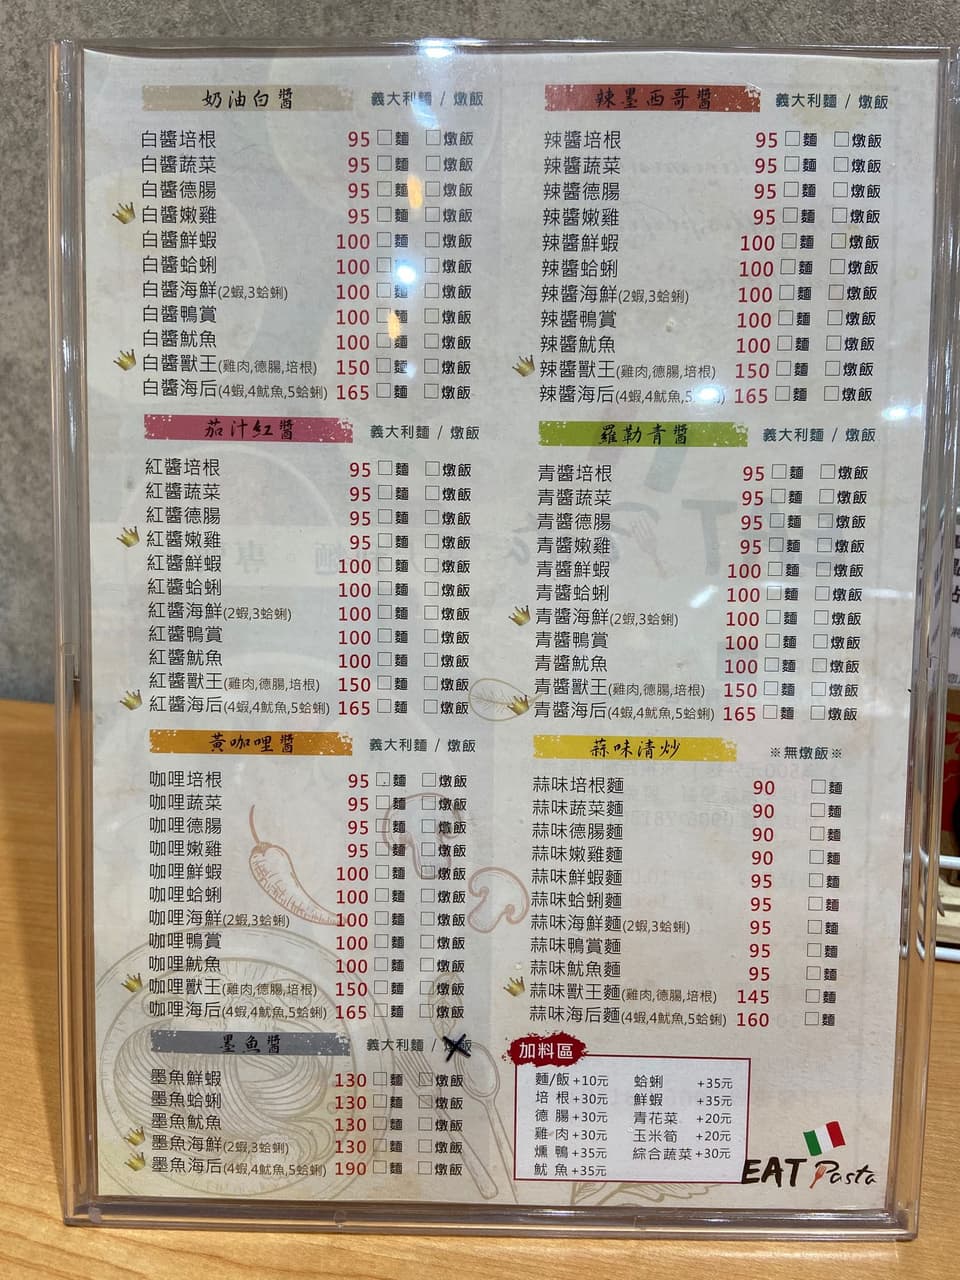 奶油白醬 義大利麵 / 燉飯
白醬培根 95 □麵 □燉飯
白醬蔬菜 95 □麵 □燉飯
白醬德腸 95 □麵 □燉飯
白醬嫩雞 95 □麵 □燉飯
白醬鮮蝦 100 □麵 □燉飯
白醬蛤蜊 100 □麵 □燉飯
白醬海鮮(2蝦,3蛤蜊) 100 □麵 □燉飯
白醬鴨賞 100 □麵 □燉飯
白醬魷魚 100 □麵 □燉飯
白醬獸王(雞肉,德腸,培根) 150 □麵 □燉飯
白醬海后(4蝦,4魷魚,5蛤蜊) 165 □麵 □燉飯
茄汁紅醬 義大利麵 / 燉飯
紅醬培根 95 □麵 □燉飯
紅醬蔬菜 95 □麵 □燉飯
紅醬德腸 95 □麵 □燉飯
紅醬嫩雞 95 □麵 □燉飯
紅醬鮮蝦 100 □麵 □燉飯
紅醬蛤蜊 100 □麵 □燉飯
紅醬海鮮(2蝦,3蛤蜊) 100 □麵 □燉飯
紅醬鴨賞 100 □麵 □燉飯
紅醬魷魚 100 □麵 □燉飯
紅醬獸王(雞肉,德腸,培根) 150 □麵 □燉飯
紅醬海后(4蝦,4魷魚,5蛤蜊) 165 □麵 □燉飯
黃咖哩醬 義大利麵 / 燉飯
咖哩培根 95 □麵 □燉飯
咖哩蔬菜 95 □麵 □燉飯
咖哩德腸 95 □麵 □燉飯
咖哩嫩雞 95 □麵 □燉飯
咖哩鮮蝦 100 □麵 □燉飯
咖哩蛤蜊 100 □麵 □燉飯
咖哩海鮮(2蝦,3蛤蜊) 100 □麵 □燉飯
咖哩鴨賞 100 □麵 □燉飯
咖哩魷魚 100 □麵 □燉飯
咖哩獸王(雞肉,德腸,培根) 150 □麵 □燉飯
咖哩海后(4蝦,4魷魚,5蛤蜊) 165 □麵 □燉飯
墨魚醬 義大利麵 / 燉飯
墨魚鮮蝦 130 □麵 □燉飯
墨魚蛤蜊 130 □麵 □燉飯
墨魚魷魚 130 □麵 □燉飯
墨魚海鮮(2蝦,3蛤蜊) 130 □麵 □燉飯
墨魚海后(4蝦,4魷魚,5蛤蜊) 190 □麵 □燉飯
辣墨西哥醬 義大利麵 / 燉飯
辣醬培根 95 □麵 □燉飯
辣醬蔬菜 95 □麵 □燉飯
辣醬德腸 95 □麵 □燉飯
辣醬嫩雞 95 □麵 □燉飯
辣醬鮮蝦 100 □麵 □燉飯
辣醬蛤蜊 100 □麵 □燉飯
辣醬海鮮(2蝦,3蛤蜊) 100 □麵 □燉飯
辣醬鴨賞 100 □麵 □燉飯
辣醬魷魚 100 □麵 □燉飯
辣醬獸王(雞肉,德腸,培根) 150 □麵 □燉飯
辣醬海后(4蝦,4魷魚,5蛤蜊) 165 □麵 □燉飯
羅勒青醬 義大利麵 / 燉飯
青醬培根 95 □麵 □燉飯
青醬蔬菜 95 □麵 □燉飯
青醬德腸 95 □麵 □燉飯
青醬嫩雞 95 □麵 □燉飯
青醬鮮蝦 100 □麵 □燉飯
青醬蛤蜊 100 □麵 □燉飯
青醬海鮮(2蝦,3蛤蜊) 100 □麵 □燉飯
青醬鴨賞 100 □麵 □燉飯
青醬魷魚 100 □麵 □燉飯
青醬獸王(雞肉,德腸,培根) 150 □麵 □燉飯
青醬海后(4蝦,4魷魚,5蛤蜊) 165 □麵 □燉飯
蒜味清炒 ※無燉飯※
蒜味培根麵 90 □麵
蒜味蔬菜麵 90 □麵
蒜味德腸麵 90 □麵
蒜味嫩雞麵 90 □麵
蒜味鮮蝦麵 95 □麵
蒜味蛤蜊麵 95 □麵
蒜味海鮮麵(2蝦,3蛤蜊) 95 □麵
蒜味鴨賞麵 95 □麵
蒜味魷魚麵 95 □麵
蒜味獸王麵(雞肉,德腸,培根) 145 □麵
蒜味海后麵(4蝦,4魷魚,5蛤蜊) 160 □麵
加料區
麵/飯+10元 蛤蜊 +35元
培根+30元 鮮蝦 +35元
德腸+30元 青花菜 +20元
雞肉+30元 玉米筍 +20元
燻鴨+35元 綜合蔬菜+30元
魷魚+35元
EAT Pasta